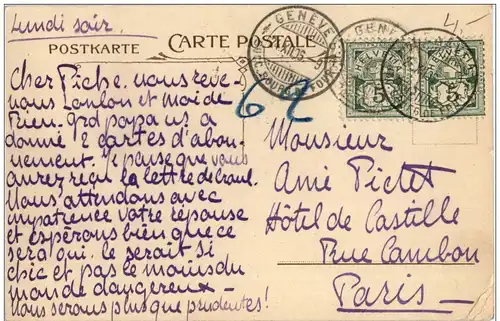 Lundi soir.
POSTKARTE CARTE POSTALE
GENÈVE
4,-
62
5
5
Cher Piche. nous reve-
nous Loulou et moi de
Rien. Grd papa us a
donné 2 cartes d'abon-
nement. Je pense que vous
aurez reçu la lettre de
Nous attendons avec
impatience votre réponse
et espérons bien que ce
sera oui. le serait si
chic et pas le moins du
monde dangereux -
Nous serons plus que prudentes!
Monsieur
Amé Pictet
Hôtel de Castille
Rue Cambon
Paris —